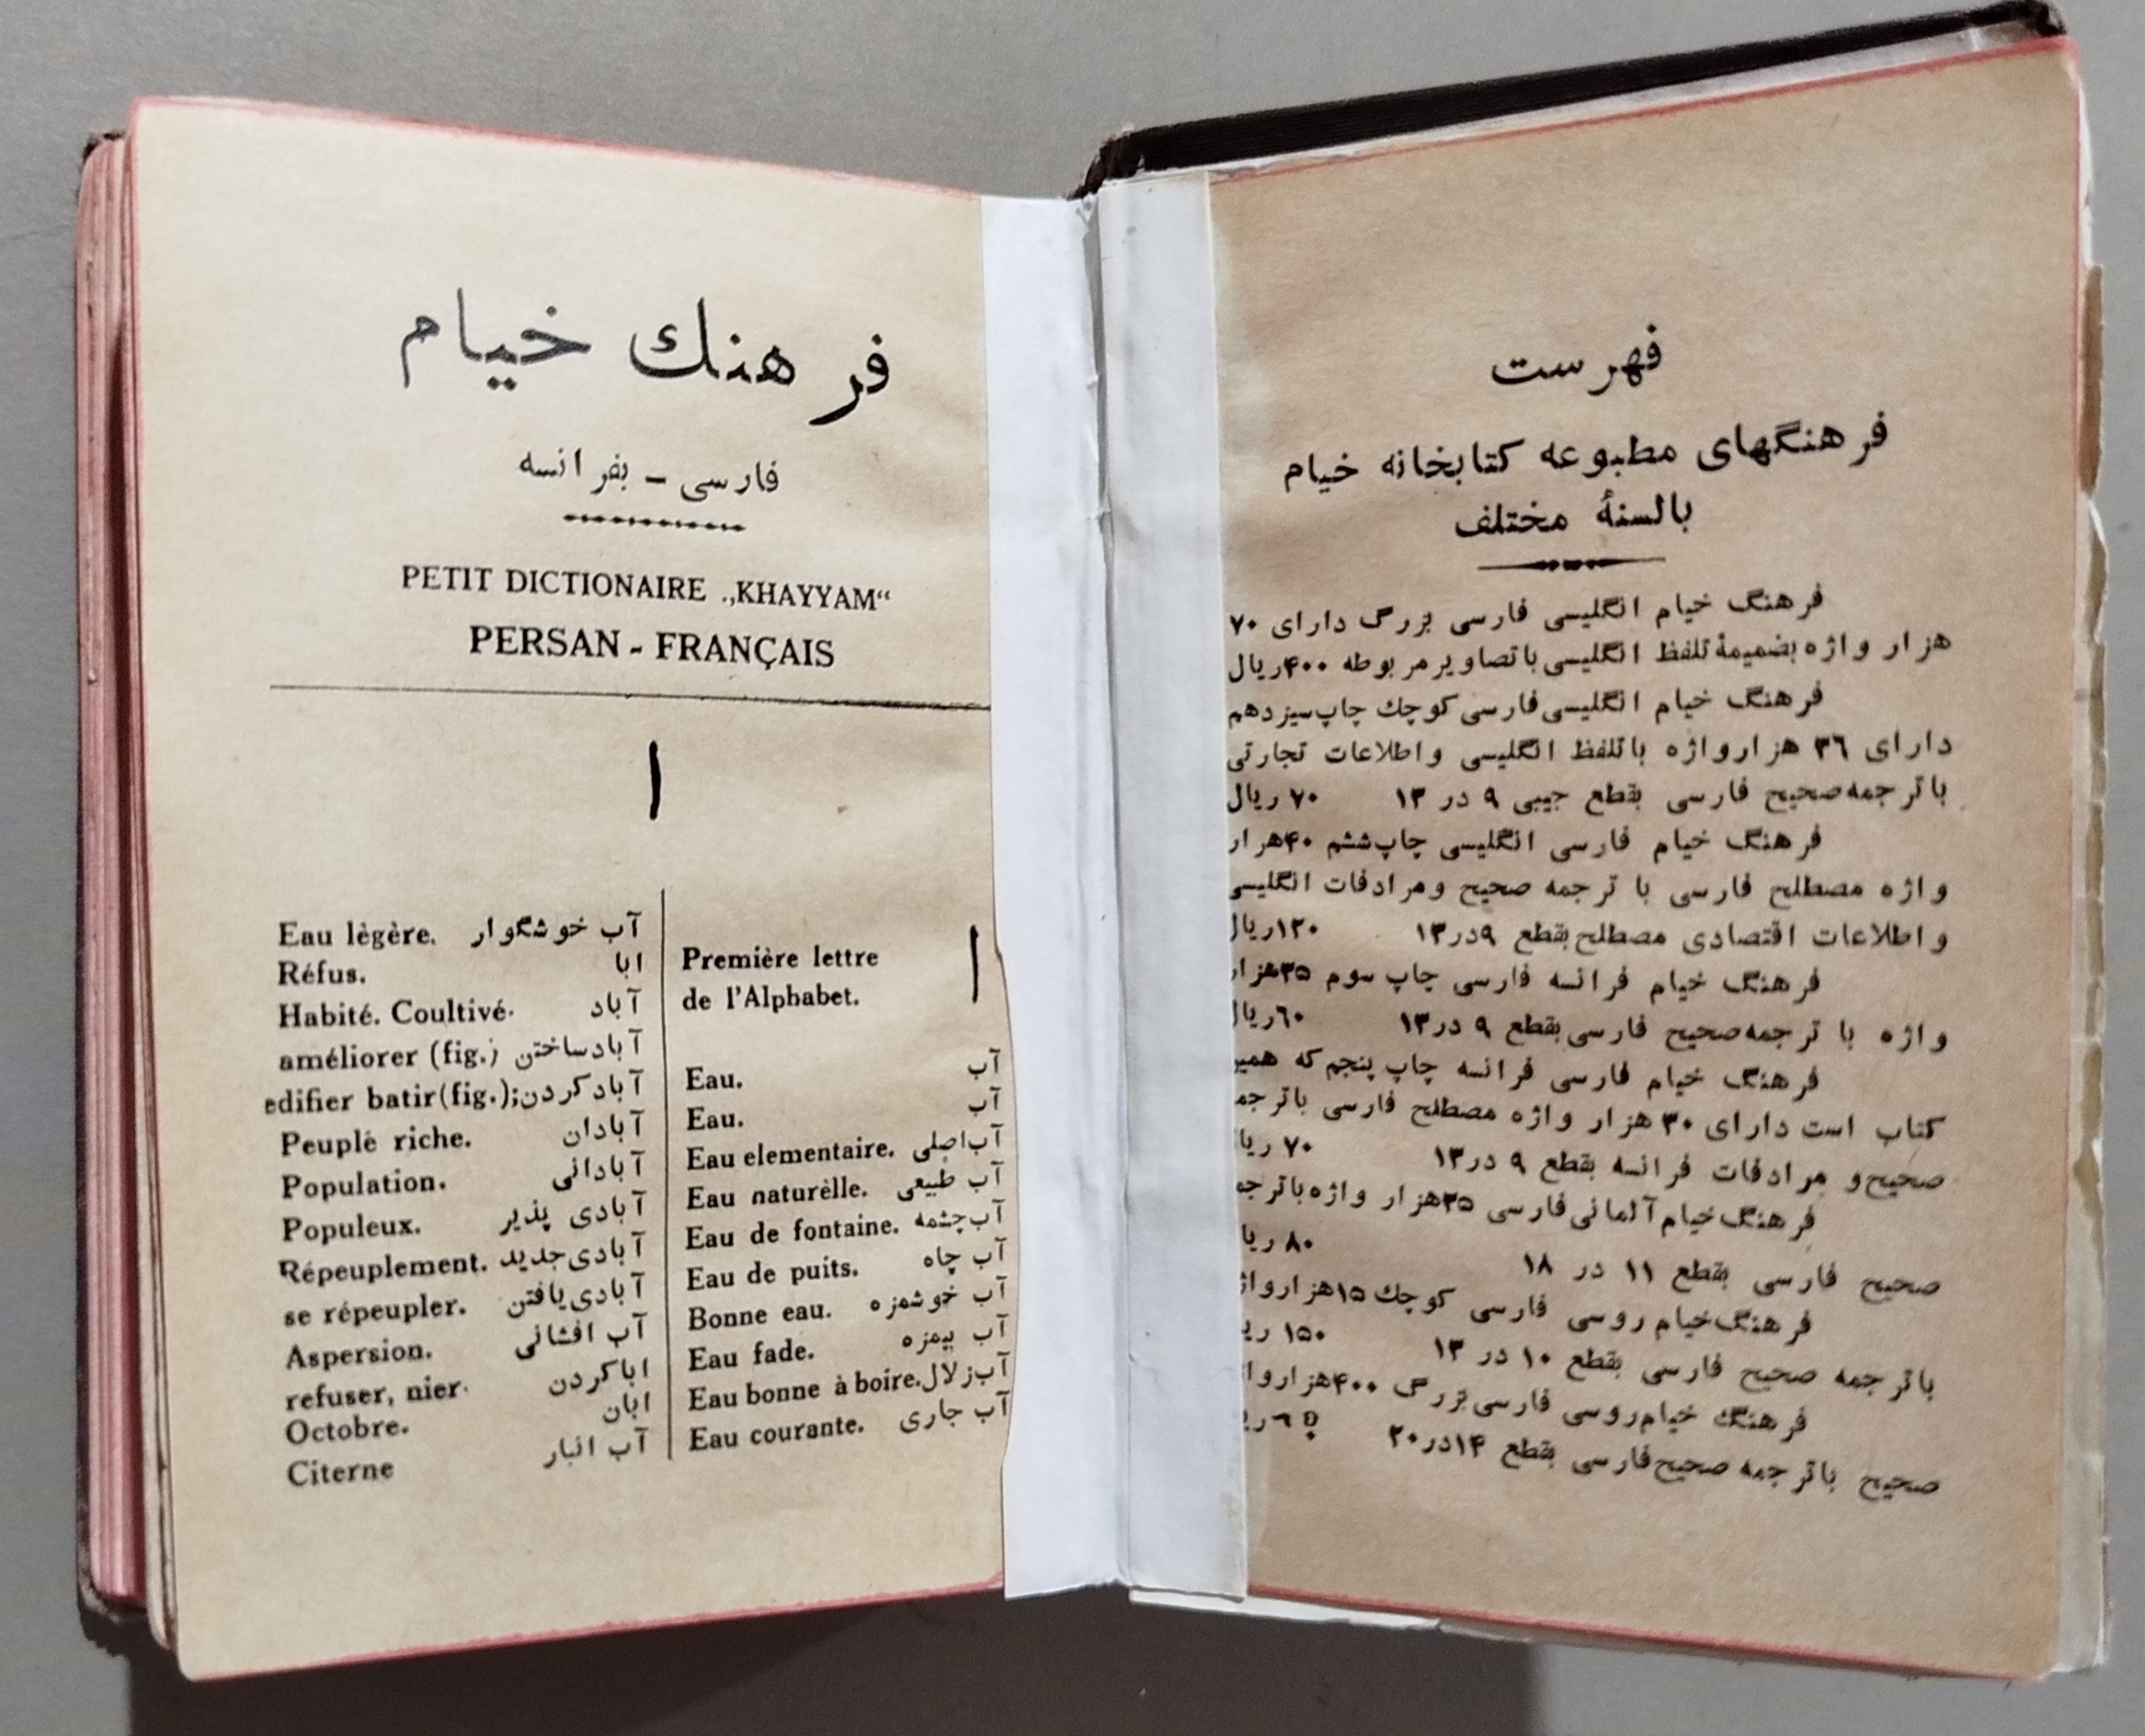 فهرست
فرهنگهای مطبوعه کتابخانه خیام
بالسنهٔ مختلف
فرهنگ خیام انگلیسی فارسی بزرگ دارای ۷۰
هزار واژه بضمیمهٔ تلفظ انگلیسی با تصاویر مربوطه ۴۰۰ ریال
فرهنگ خیام انگلیسی فارسی کوچك چاپ سیزدهم
دارای ۳۶ هزار واژه با تلفظ انگلیسی و اطلاعات تجارتی
با ترجمه صحیح فارسی بقطع جیبی ۹ در ۱۳ ۷۰ ریال
فرهنگ خیام فارسی انگلیسی چاپ ششم ۴۰ هزار
واژه مصطلح فارسی با ترجمه صحیح و مرادفات انگلیسی
و اطلاعات اقتصادی مصطلح بقطع ۹ در ۱۳ ۱۲۰ ریال
فرهنگ خیام فرانسه فارسی چاپ سوم ۳۵ هزار
واژه با ترجمه صحیح فارسی بقطع ۹ در ۱۳ ۶۰ ریال
فرهنگ خیام فارسی فرانسه چاپ پنجم که همین
کتاب است دارای ۳۰ هزار واژه مصطلح فارسی با ترجمه
صحیح و مرادفات فرانسه بقطع ۹ در ۱۳ ۷۰ ریا
فرهنگ خیام آلمانی فارسی ۳۵ هزار واژه با ترجمه
صحیح فارسی بقطع ۱۱ در ۱۸ ۸۰ ریا
فرهنگ خیام روسی فارسی کوچك ۱۵ هزار واژ
با ترجمه صحیح فارسی بقطع ۱۰ در ۱۳ ۱۵۰ ری
فرهنگ خیام روسی فارسی بزرگ ۴۰۰ هزار وا
صحیح با ترجمه صحیح فارسی بقطع ۱۴ در ۲۰
فرهنك خیام
فارسی - بفرانسه
PETIT DICTIONAIRE „KHAYYAM“
PERSAN - FRANÇAIS
ا
Première lettre ا
de l'Alphabet.
Eau. آب
Eau. آب
Eau elementaire. آب اصلی
Eau naturèlle. آب طبیعی
Eau de fontaine. آب چشمه
Eau de puits. آب چاه
Bonne eau. آب خوشمزه
Eau fade. آب بیمزه
Eau bonne à boire. آب زلال
Eau courante. آب جاری
Eau lègère. آب خوشگوار
Réfus. ابا
Habité. Coultivé. آباد
améliorer (fig.) آباد ساختن
edifier batir (fig.); آباد کردن
Peuplé riche. آبادان
Population. آبادانی
Populeux. آبادی پذیر
Répeuplement. آبادی جدید
se répeupler. آبادی یافتن
Aspersion. آب افشانی
refuser, nier. ابا کردن
Octobre. ابان
Citerne آب انبار